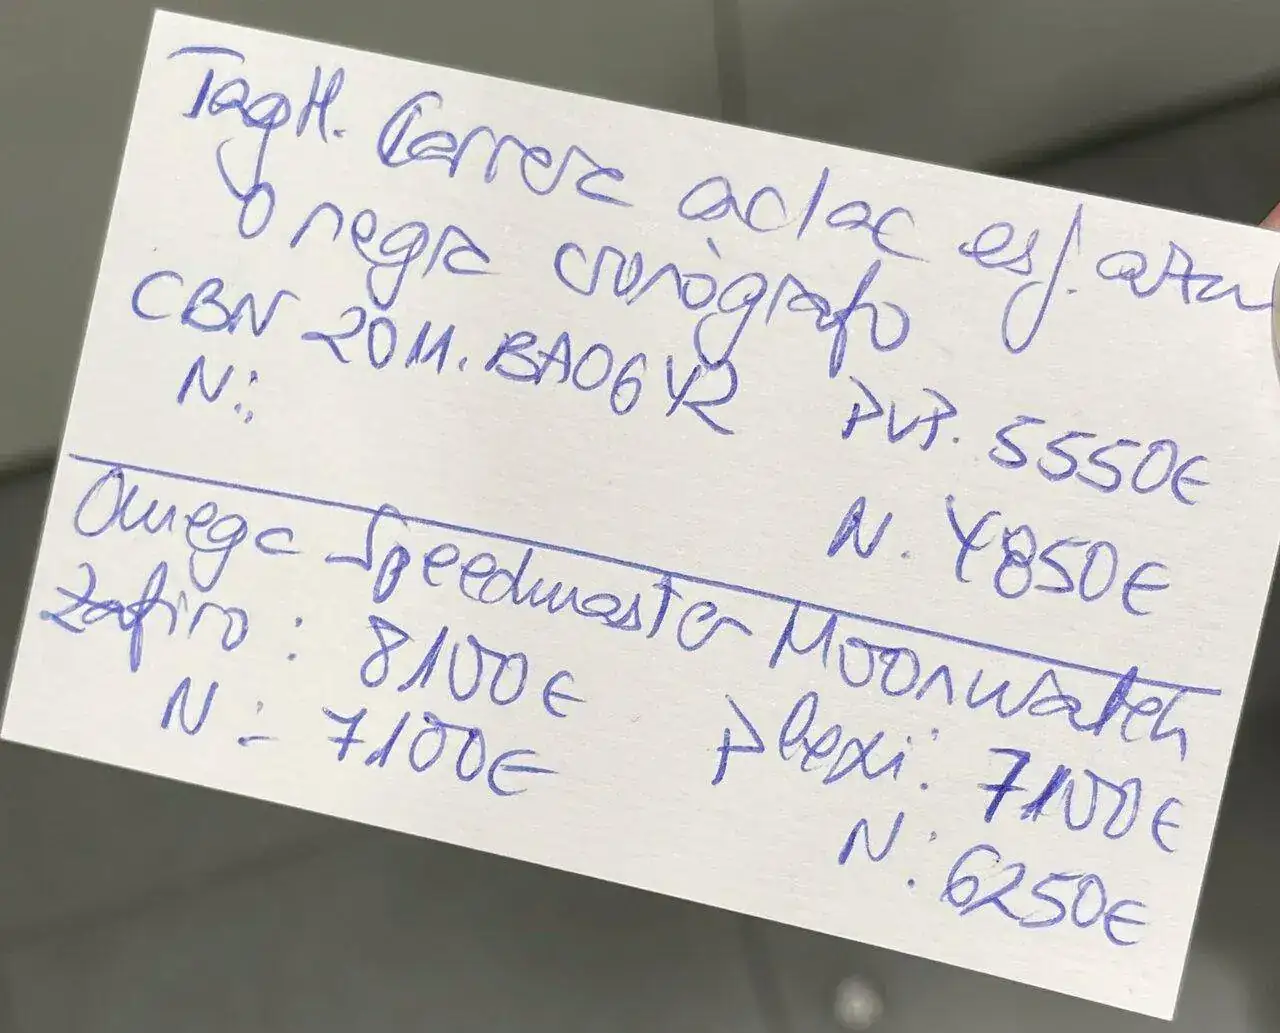 TagH. Carrera ac/ac esf. azul
o negra cronògrafo
CBN 2011.BA0642 PVP. 5550€
N.: N. 4850€
Omega Speedmaster Moonwatch
Zafiro: 8100€ Plexi: 7100€
N: 7100€ N: 6250€